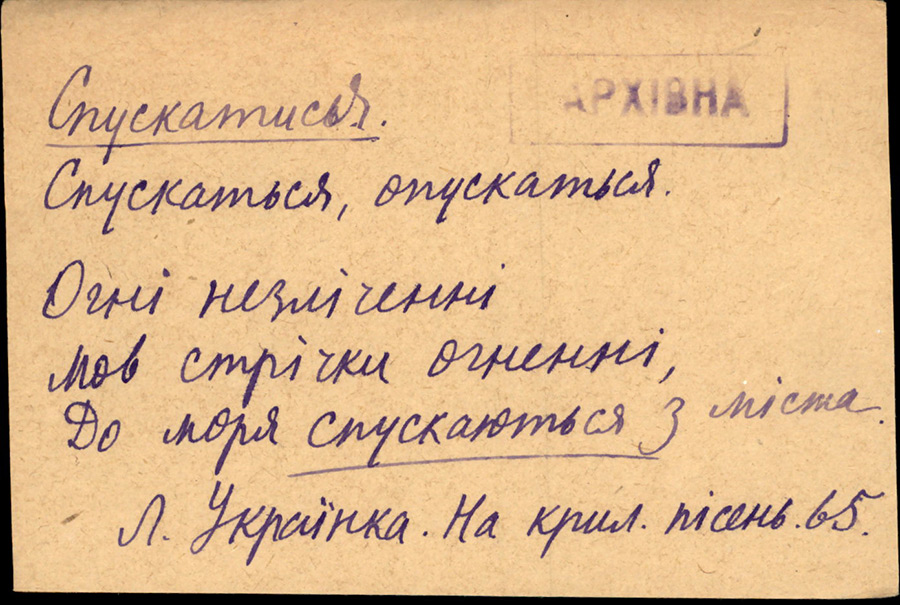 АРХІВНА
Спускатися.
Спускаться, опускаться.
Огні незліченні
мов стрічки огненні,
До моря спускаються з міста.
Л. Українка. На крил. пісень. 65.